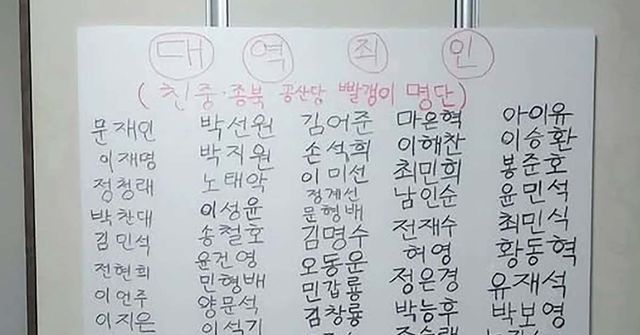 대역죄인
(친중·종북 공산당 빨갱이 명단)
문재인 박선원 김어준 마은혁 아이유
이재명 박지원 손석희 이해찬 이승환
정청래 노태악 이미선 최민희 봉준호
박찬대 이성윤 정계선 남인순 윤민석
김민석 송철호 문형배 전재수 최민식
전현희 윤건영 김명수 허영 황동혁
이언주 민형배 오동운 정은경 유재석
이지은 양문석 민갑룡 박능후 박보영
이석기 김창룡